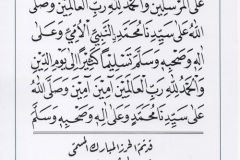 عَلَى الْمُرْسَلِينَ وَالْحَمْدُ لِلَّهِ رَبِّ الْعَالَمِينَ وَصَلَّى
اللهُ عَلَى سَيِّدِنَا مُحَمَّدٍ النَّبِيِّ الْأُمِّيِّ وَعَلَى
اٰلِهِ وَصَحْبِهِ وَسَلَّمَ تَسْلِيمًا كَثِيرًا اِلَى يَوْمِ الدِّينِ
وَالْحَمْدُ لِلَّهِ رَبِّ الْعَالَمِينَ اٰمِينَ اٰمِينَ وَصَلَّى اللهُ
عَلَى سَيِّدِنَا مُحَمَّدٍ وَعَلَى اٰلِهِ وَصَحْبِهِ وَسَلَّمَ
قد تم الحرز المبارك المسمى